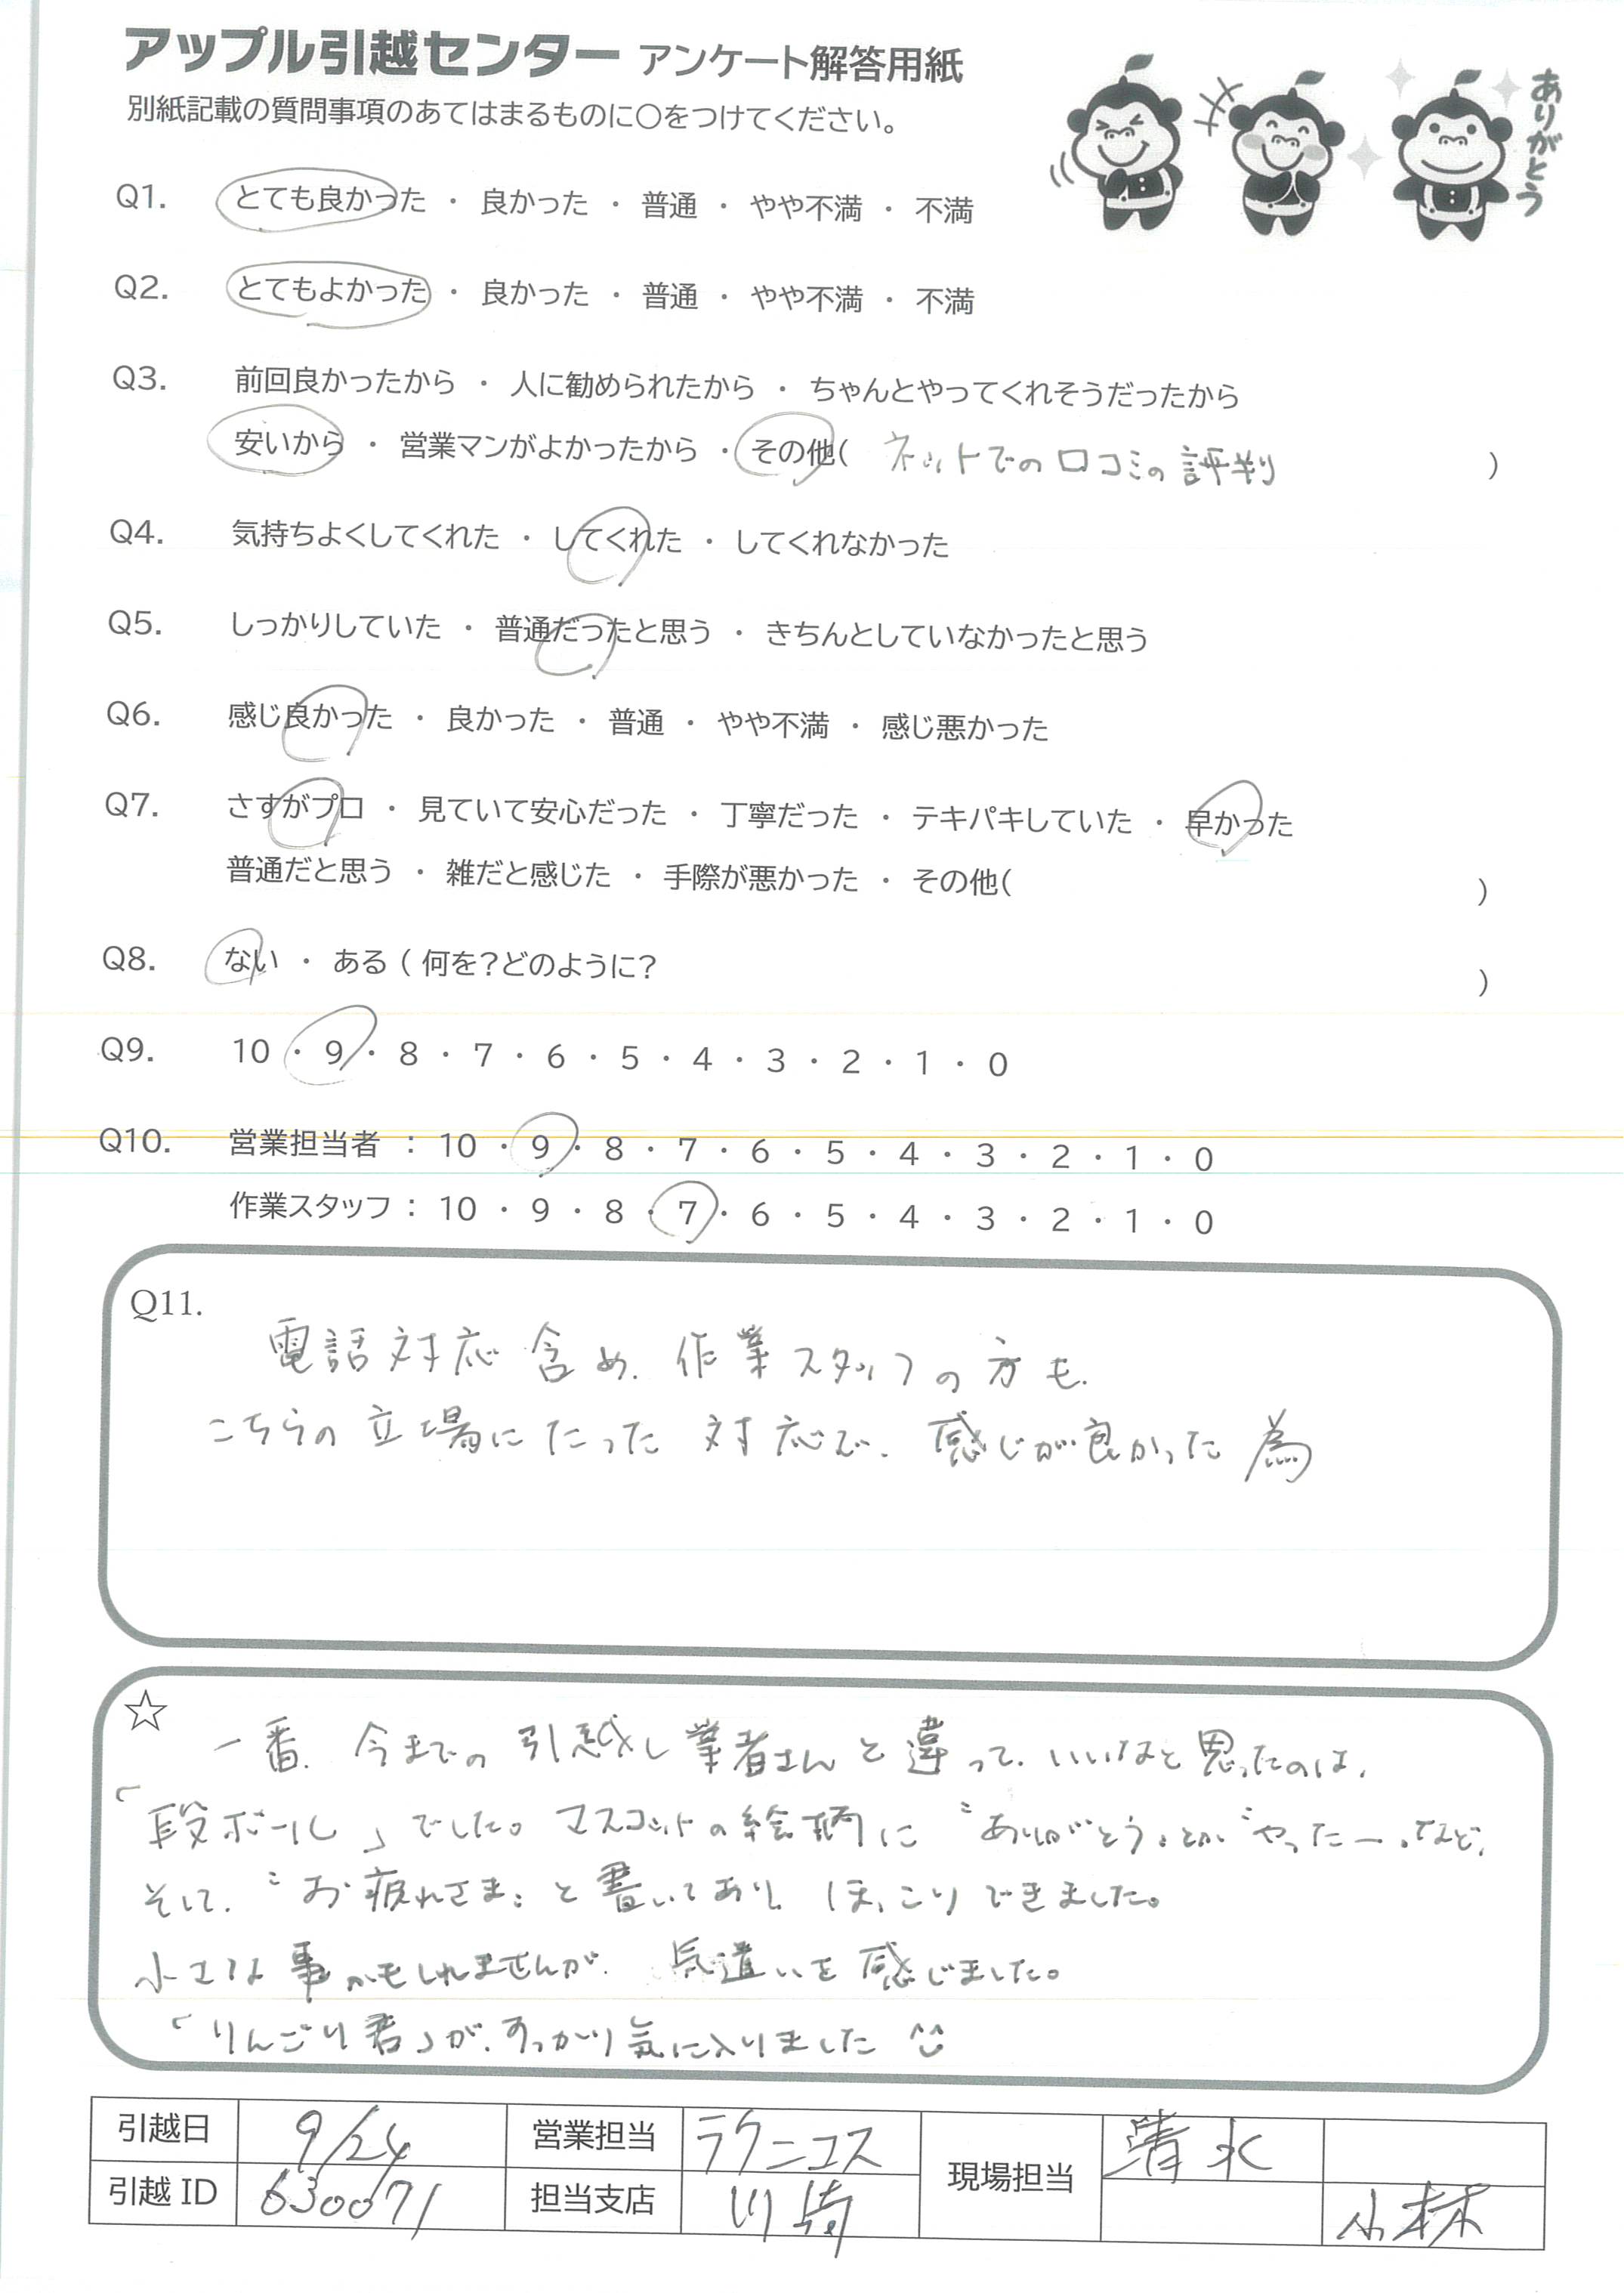 アップル引越センター アンケート解答用紙
別紙記載の質問事項のあてはまるものに○をつけてください。
ありがとう
Q1. とても良かった ・ 良かった ・ 普通 ・ やや不満 ・ 不満
Q2. とてもよかった ・ 良かった ・ 普通 ・ やや不満 ・ 不満
Q3. 前回良かったから ・ 人に勧められたから ・ ちゃんとやってくれそうだったから
安いから ・ 営業マンがよかったから ・ その他( ネットでの口コミの評判 )
Q4. 気持ちよくしてくれた ・ してくれた ・ してくれなかった
Q5. しっかりしていた ・ 普通だったと思う ・ きちんとしていなかったと思う
Q6. 感じ良かった ・ 良かった ・ 普通 ・ やや不満 ・ 感じ悪かった
Q7. さすがプロ ・ 見ていて安心だった ・ 丁寧だった ・ テキパキしていた ・ 早かった
普通だと思う ・ 雑だと感じた ・ 手際が悪かった ・ その他( )
Q8. ない ・ ある ( 何を？どのように？ )
Q9. 10 ・ 9 ・ 8 ・ 7 ・ 6 ・ 5 ・ 4 ・ 3 ・ 2 ・ 1 ・ 0
Q10. 営業担当者 : 10 ・ 9 ・ 8 ・ 7 ・ 6 ・ 5 ・ 4 ・ 3 ・ 2 ・ 1 ・ 0
作業スタッフ : 10 ・ 9 ・ 8 ・ 7 ・ 6 ・ 5 ・ 4 ・ 3 ・ 2 ・ 1 ・ 0
Q11.
電話対応含め、作業スタッフの方も、
こちらの立場にたった対応で、感じが良かった為
☆
一番、今までの引越し業者さんと違って、いいなと思ったのは、
「段ボール」でした。マスコットの絵柄に〝ありがとう〟とか〝やったー〟など、
そして、〝お疲れさま〟と書いてあり、ほっこりできました。
小さな事かもしれませんが、気遣いを感じました。
「りんごり君」が、すっかり気に入りました
引越日 9/24 営業担当 ラクニコス 現場担当 清水
引越ID 630071 担当支店 川崎 小林